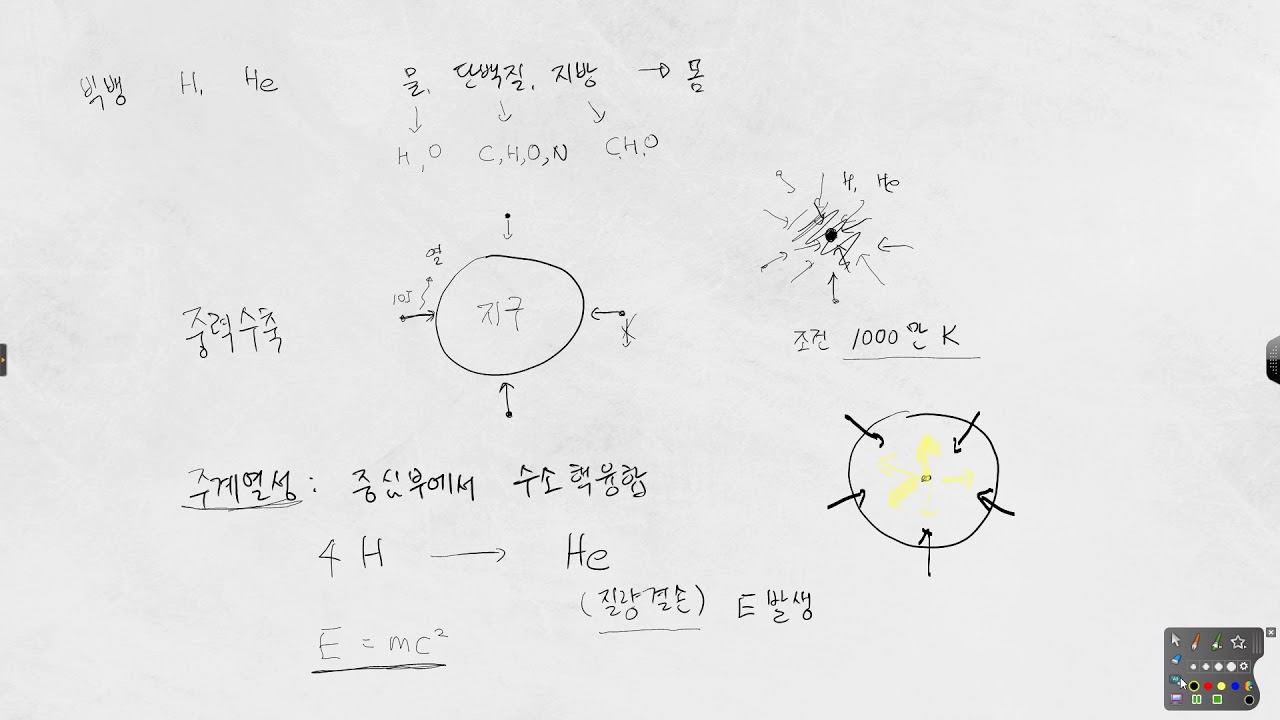 빅뱅 H, He 물, 단백질, 지방 → 몸
H, O C, H, O, N C, H, O
H, He
열
10J
지구
중력수축
조건 1000만 K
주계열성 : 중심부에서 수소핵융합
4 H → He
(질량결손) E 발생
E = mc²